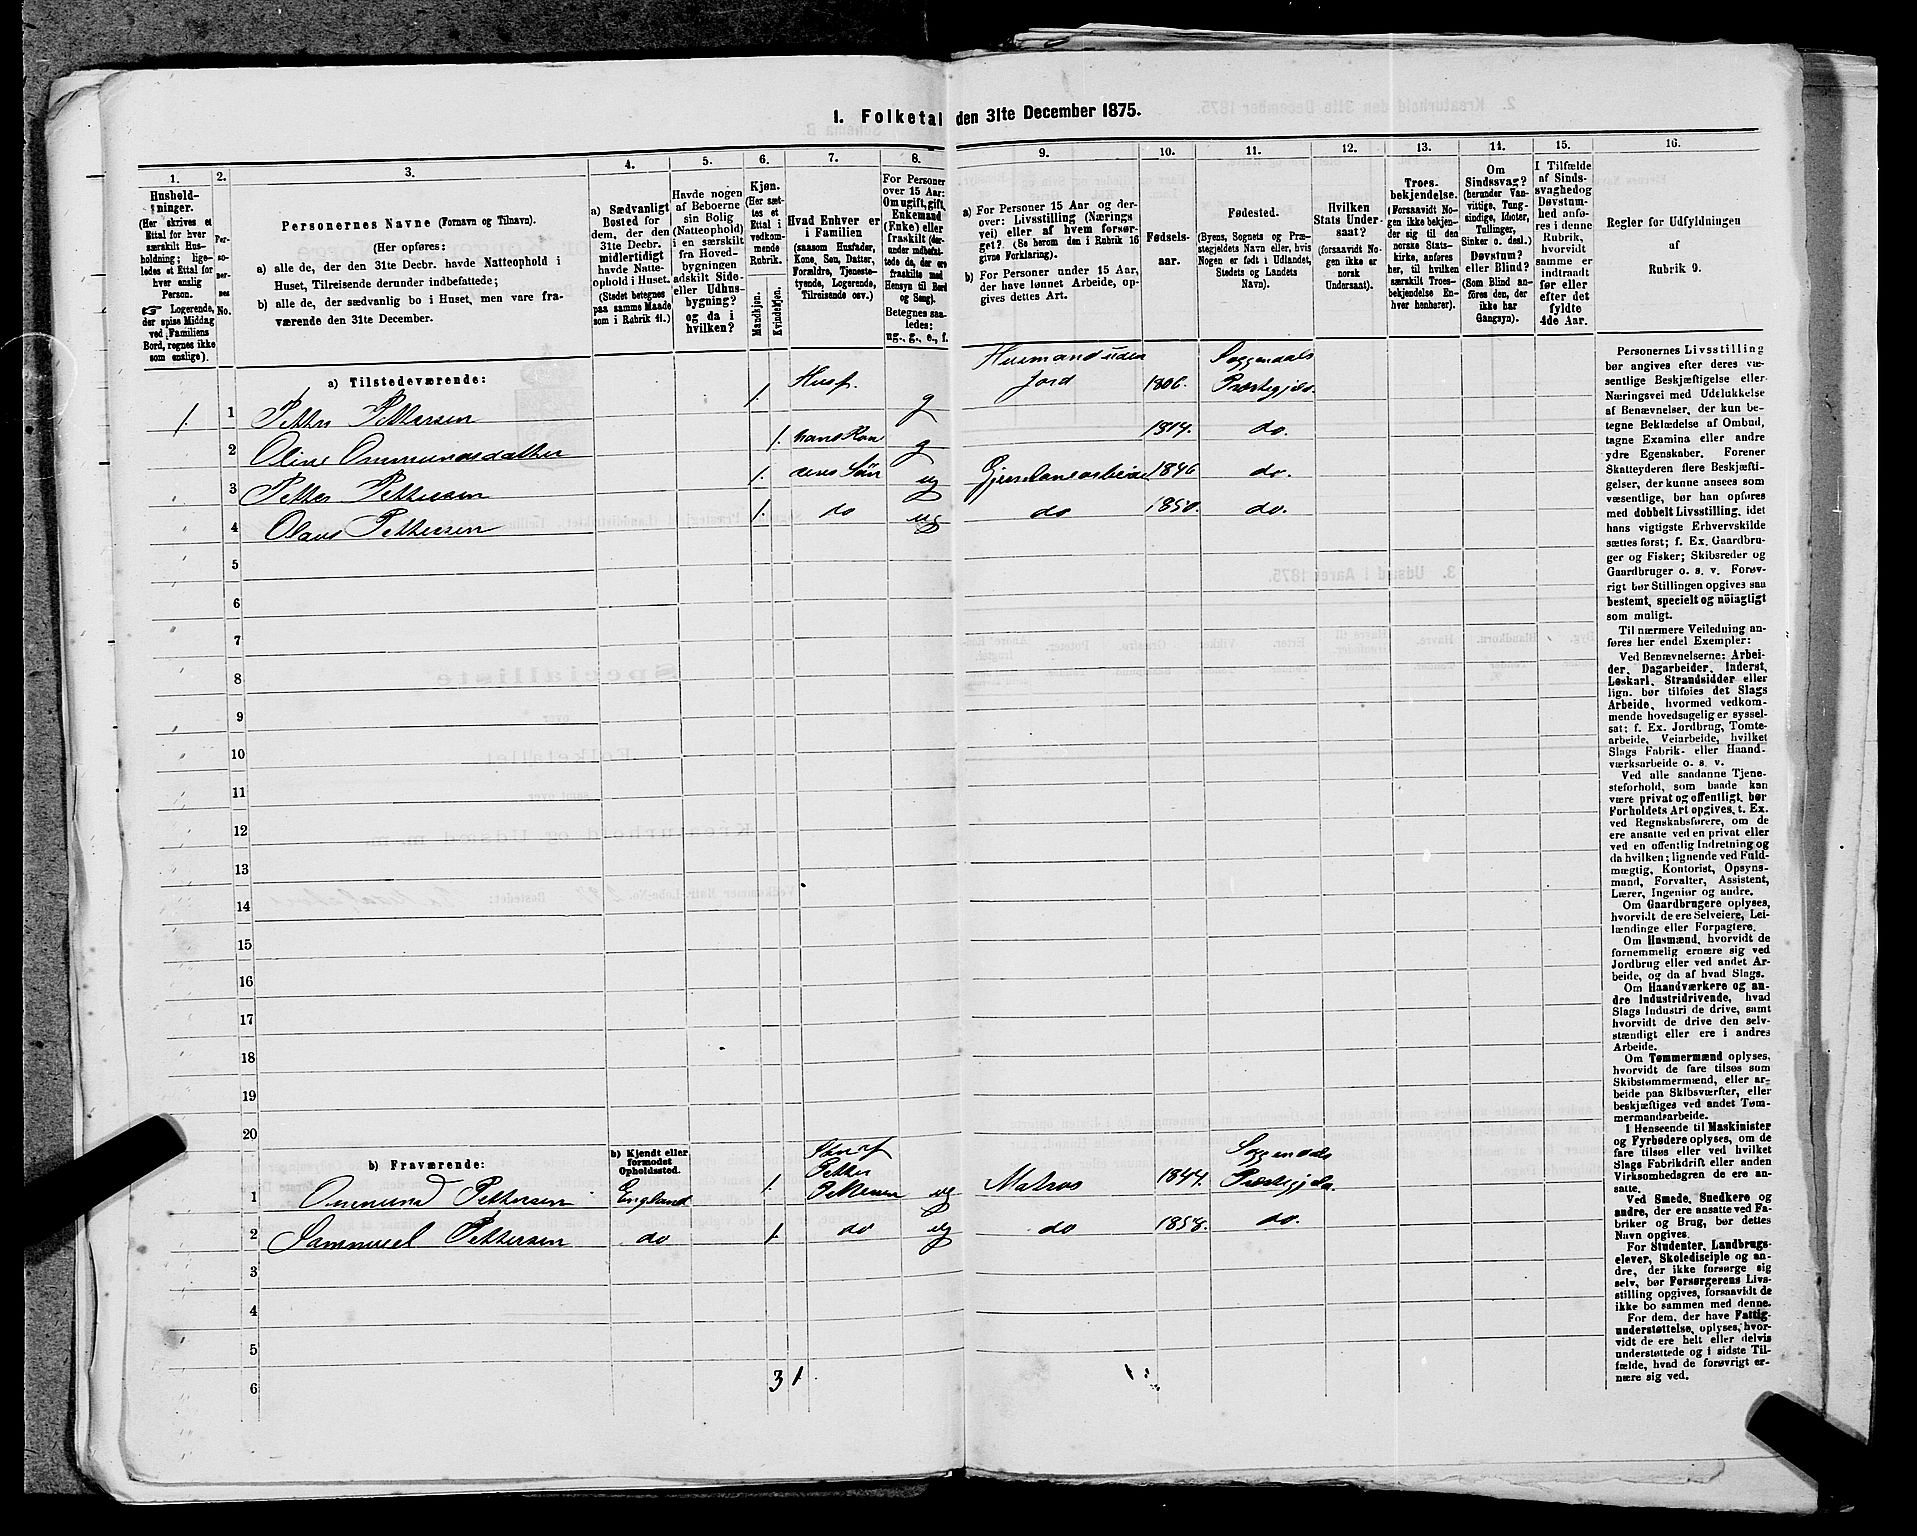 1. Folketal den 31te December 1875.
1. 2. 3. 4. 5. 6. 7. 8. 9. 10. 11. 12. 13. 14. 15. 16.
Hushold-
ninger.
(Her skrives et
Ettal for hver
særskilt Hus-
holdning; lige-
ledes et Ettal for
hver enslig
Person.
☞ Logerende,
der spise Middag
ved Familiens
Bord, regnes ikke
som enslige).
Per-
so-
ner-
nes
No.
Personernes Navne (Fornavn og Tilnavn).
(Her opføres:
a) alle de, der den 31te Decbr. havde Natteophold i
Huset, Tilreisende derunder indbefattede;
b) alle de, der sædvanlig bo i Huset, men vare fra-
værende den 31te December.
a) Sædvanligt
Bosted for
dem, der den
31te Decbr.
midlertidigt
havde Natte-
ophold i Huset.
(Stedet betegnes
paa samme Maade
som i Rubrik 11.)
Havde nogen
af Beboerne
sin Bolig
(Natteophold)
i en særskilt
fra Hoved-
bygningen
adskilt Side-
eller Udhus-
bygning?
og da i
hvilken?
Kjøn.
(Her sæt-
tes et
Ettal i
vedkom-
mende
Rubrik.
Mandkjøn.
Kvindekjøn.
Hvad Enhver er
i Familien
(saasom Husfader,
Kone, Søn, Datter,
Forældre, Tjeneste-
tyende, Logerende,
Tilreisende osv.)
For Personer
over 15 Aar:
Om ugift, gift,
Enkemand
(Enke) eller
fraskilt (der-
under indbefat-
tede de, der ere
fraskilte med
Hensyn til Bord
og Seng).
Betegnes saa-
ledes:
ug., g., e., f.
a) For Personer 15 Aar og der-
over: Livsstilling (Nærings
vei) eller af hvem forsør-
get?. (Se herom den i Rubrik 16
givne Forklaring).
b) For Personer under 15 Aar,
der have lønnet Arbeide, op-
gives dettes Art.
Fødsels-
aar.
Fødested.
(Byens, Sognets og Præ-
stegjeldets Navn eller, hvis
Nogen er født i Udlandet,
Stedets og Landets
Navn).
Hvilken
Stats Under-
saat?
(forsaavidt No-
gen ikke er
norsk
Undersaat).
Troes-
bekjendelse.
(Forsaavidt No-
gen ikke bekjen-
der sig til den
norske Stats-
kirke, anføres
her, til hvilken
særskilt Troes-
bekjendelse En-
hver henhører).
Om
Sindssvag?
(herunder Van-
vittige, Tung-
sindige, Idioter,
Tullinger,
Sinker o. desl.)
Døvstum?
eller Blind?
(Som Blind an-
føres den, der
ikke har
Gangsyn).
I Tilfælde
af Sinds-
svaghed og
Døvstum-
hed anfø-
res i denne
Rubrik,
hvorvidt
samme er
indtraadt
før eller
efter det
fyldte
4de Aar.
Regler for Udfyldningen
af
Rubrik 9.
a) Tilstedeværende:
1. 1 Petter Pettersen 1. Husf. g Husmand uden Jord 1806. Soggendals Præstegjeld.
2 Oline Ommundsdatter 1. hans Kone g 1814. do.
3 Petter Pettersen 1. deres Søn ug Jernbanearbeider 1846 do.
4 Olaus Pettersen 1. do ug do 1850. do.
5
6
7
8
9
10
11
12
13
14
15
16
17
18
19
20
b) Fraværende:
b) Kjendt eller
formodet
Opholdssted.
1 Ommund Pettersen England 1. Petter Pettersen ug Matros 1844. Soggendals Præstegjeld.
2 Sammuel Pettersen do 1. do ug do 1858. do.
3
4
5
6
3 1
Personernes Livsstilling
bør angives efter deres væ-
sentlige Beskjæftigelse eller
Næringsvei med Udelukkelse
af Benævnelser, der kun be-
tegne Beklædelse af Ombud,
tagne Examina eller andre
ydre Egenskaber. Forener
Skatteyderen flere Beskjæfti-
gelser, der kunne ansees som
væsentlige, bør han opføres
med dobbelt Livsstilling, idet
hans vigtigste Erhvervskilde
sættes først; f. Ex. Gaardbru-
ger og Fisker; Skibsreder og
Gaardbruger o. s. v. Forøv-
rigt bør Stillingen opgives saa
bestemt, specielt og nøiagtigt
som muligt.
Til nærmere Veiledning an-
føres her endel Exempler:
Ved Benævnelserne: Arbei-
der, Dagarbeider, Inderst,
Løskarl, Strandsidder eller
lign. bør tilføies det Slags
Arbeide, hvormed vedkom-
mende hovedsagelig er syssel-
sat; f. Ex. Jordbrug, Tomte-
arbeide, Veiarbeide, hvilket
Slags Fabrik- eller Haand-
værksarbeide o. s. v.
Ved alle saadanne Tjene-
steforhold, som baade kan
være privat og offentligt, bør
Forholdets Art opgives, t. Ex.
ved Regnskabsførere, om de
ere ansatte ved en privat eller
ved en offentlig Indretning og
da hvilken; lignende ved Fuld-
mægtig, Kontorist, Opsyns-
mand, Forvalter, Assistent,
Lærer, Ingeniør og andre.
Om Gaardbrugere oplyses,
hvorvidt de ere Selveiere, Lei-
lændinge eller Forpagtere.
Om Husmænd, hvorvidt de
fornemmelig ernære sig ved
Jordbrug eller ved andet Ar-
beide, og da af hvad Slags.
Om Haandværkere og an-
dre Industridrivende, hvad
Slags Industri de drive, samt
hvorvidt de drive den selv-
stændigt eller ere i andres
Arbeide.
Om Tømmermænd oplyses,
hvorvidt de fare tilsøs som
Skibstømmermænd, eller ar-
beide paa Skibsværfter, eller
beskjæftiges ved andet Tøm-
mermandsarbeide.
I Henseende til Maskinister
og Fyrbødere oplyses, om de
fare tilsøs eller ved hvilket
Slags Fabrikdrift eller anden
Virksomhedsgren de ere an-
satte.
Ved Smede, Snedkere og
andre, der ere ansatte ved Fa-
briker og Brug, bør dettes
Navn opgives.
For Studenter, Landbrugs-
elever, Skoledisciple og an-
dre, der ikke forsørge sig
selv, bør Forsørgerens Livs-
stilling opgives, forsaavidt de
ikke bo sammen med denne.
For dem, der have Fattig-
understøttelse, oplyses, hvor-
vidt de ere helt eller delvis
understøttede og i sidste Til-
fælde, hvad de forøvrigt er-
nære sig ved.